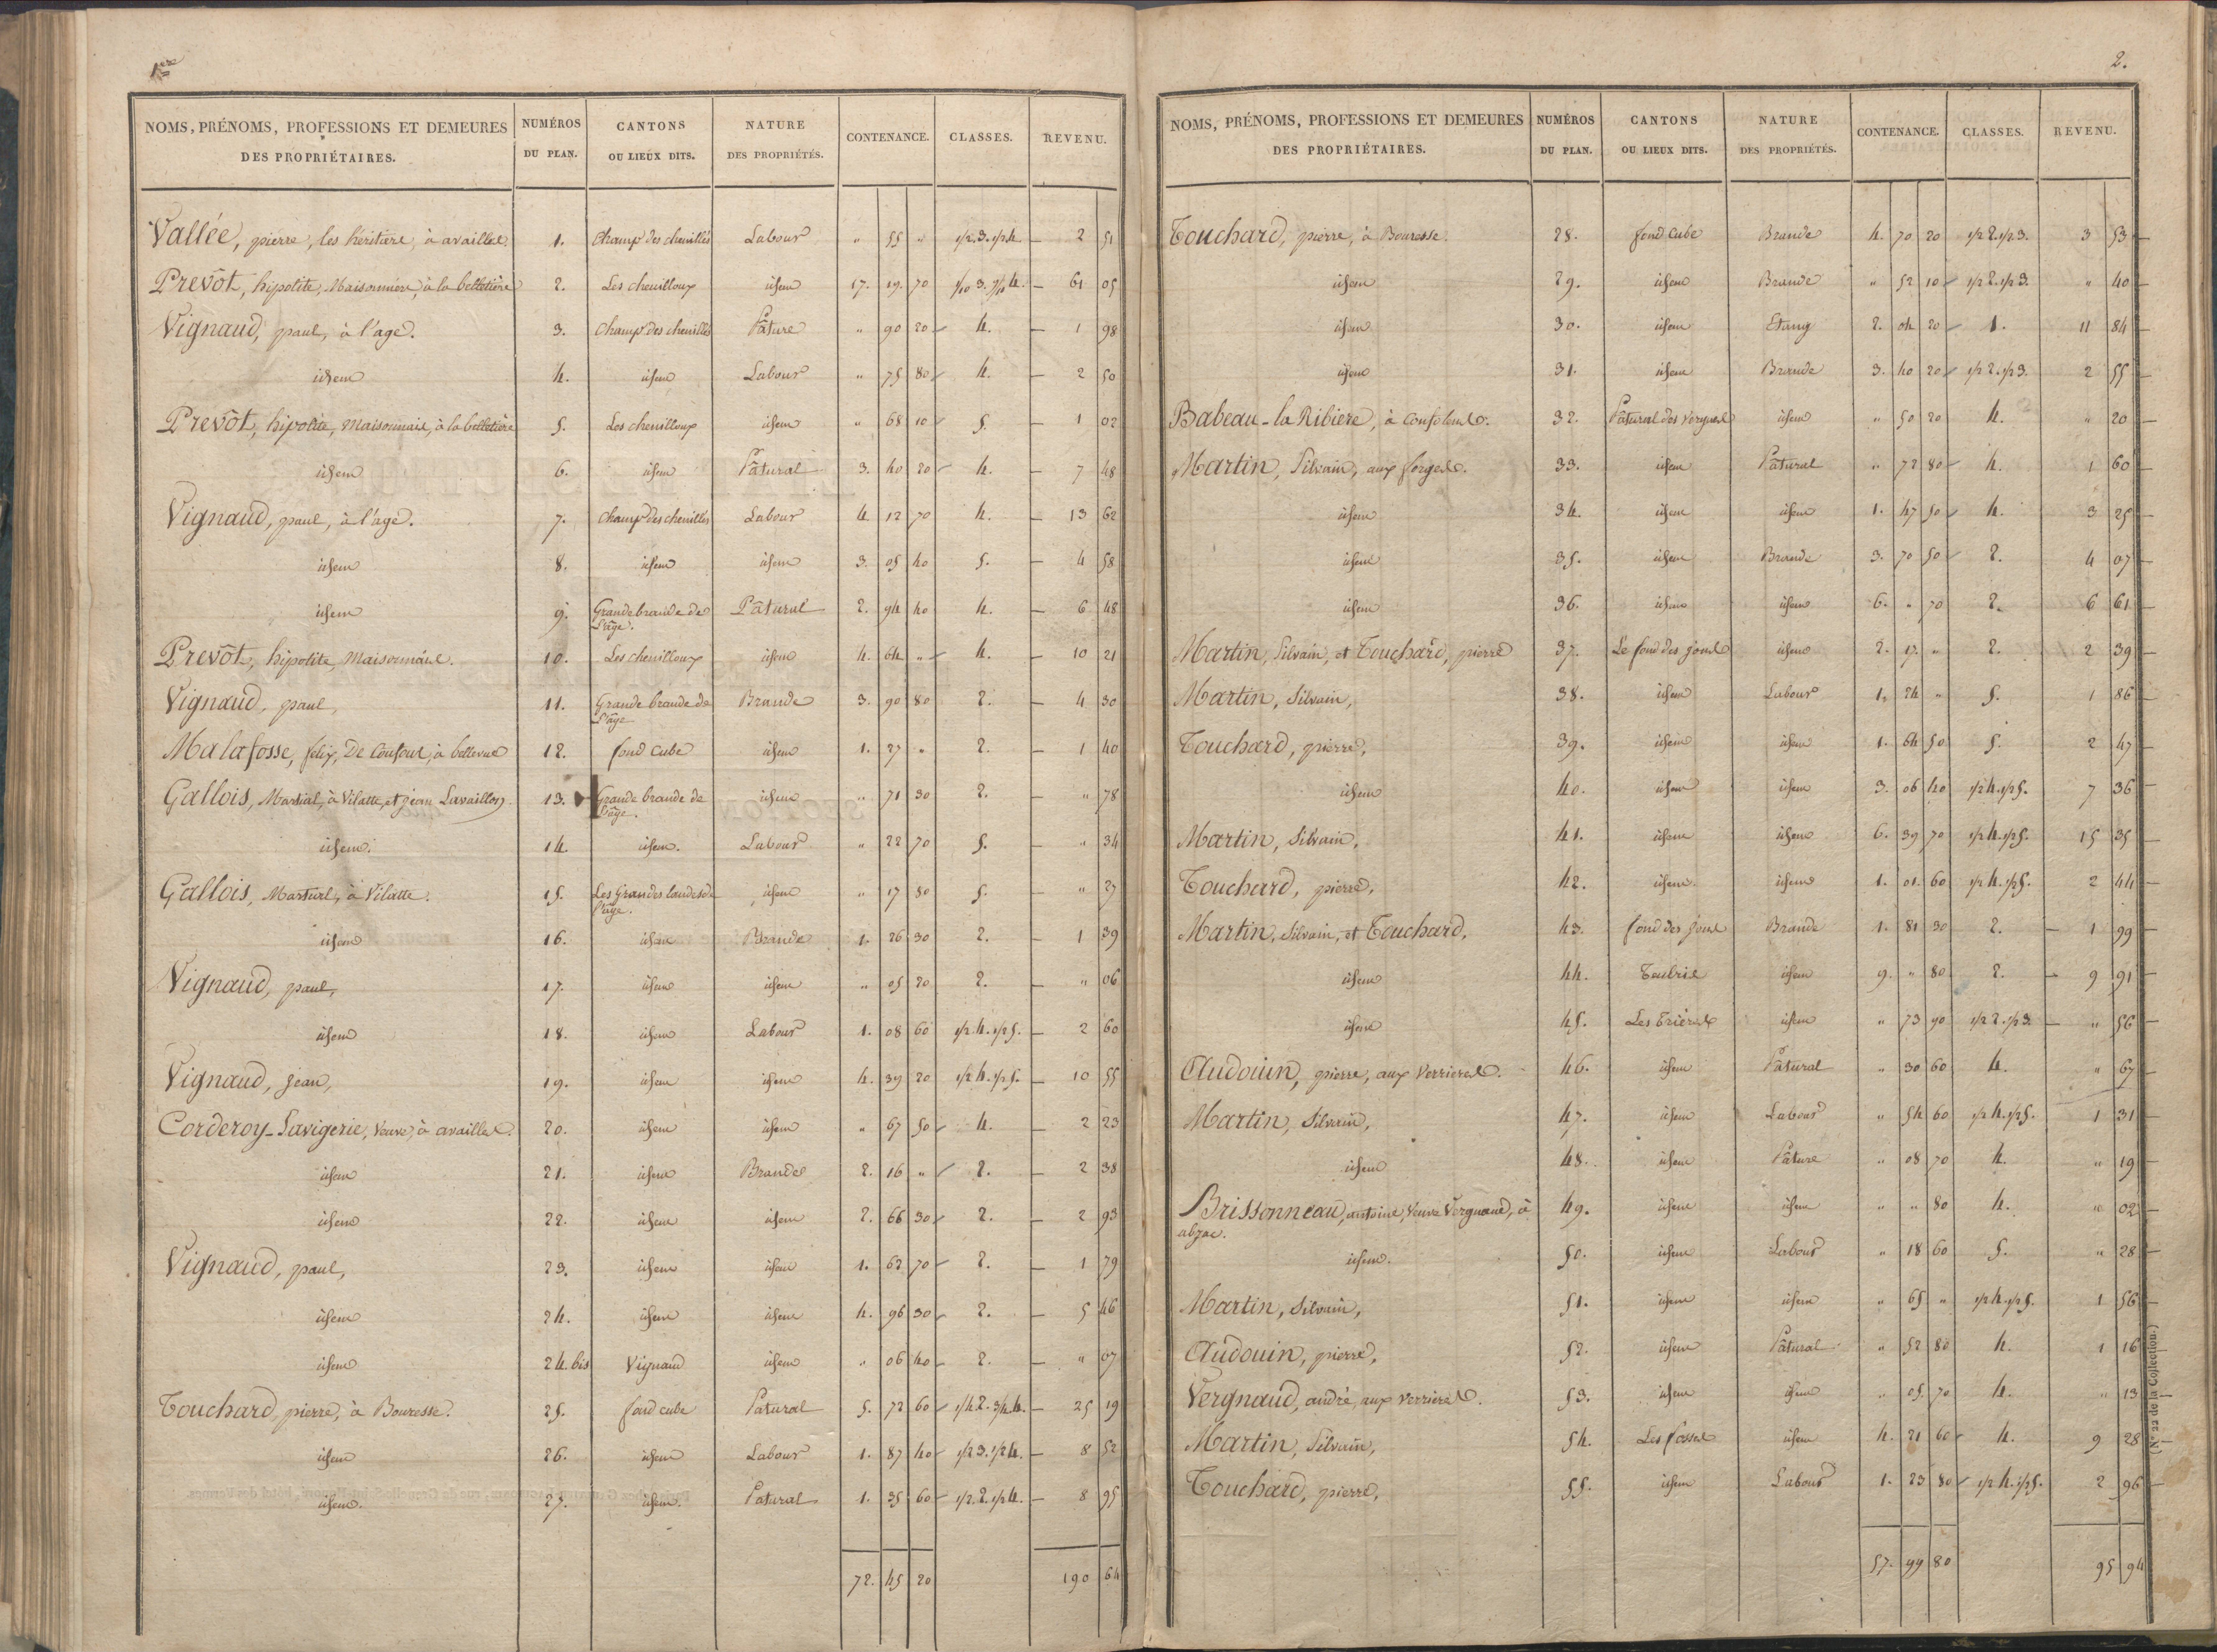 1re
NOMS, PRÉNOMS, PROFESSIONS ET DEMEURES DES PROPRIÉTAIRES. NUMÉROS DU PLAN. CANTONS OU LIEUX DITS. NATURE DES PROPRIÉTÉS. CONTENANCE. CLASSES. REVENU.
Vallée, pierre, les héritiers, à availles 1. Champ des chenilles Labour " 55 " 1/2.3.1/2 4. 2 51
Prevôt, hipolite, Maisonnière, à la belletière 2. Les chenilloux idem 17. 19. 70 1/10 3. 9/10 4. 61 05
Vignaud, paul, à l'age. 3. Champ des chenilles Pâture " 90 20 4. 1 98
idem 4. idem Labour " 75 80 4. 2 50
Prevôt, hipolite, Maisonnais, à la belletière 5. Les chenilloux idem " 68 10 5. 1 02
idem 6. idem Pâtural 3. 40 20 4. 7 48
Vignaud, paul, à l'age. 7. Champ des chenilles Labour 4. 12 70 4. 13 62
idem 8. idem idem 3. 05 40 5. 4 58
idem 9. Grande brande de L'âge. Pâtural 2. 94 40 4. 6 48
Prevôt, hipolite, 10. Les chenilloux idem 4. 64 " 4. 10 21
Vignaud, paul, 11. Grande brande de L'âge Brande 3. 90 80 2. 4 30
Malafosse, felix, De Coufour, à bellevue 12. fond cube idem 1. 27 " 2. 1 40
Gallois, Martial, à Vilatte, et jean Lavaillon 13. Grande brande de L'âge. idem " 71 30 2. " 78
idem. 14. idem. Labour " 22 70 5. " 34
Gallois, Martial, à Vilatte. 15. Les Grandes landes de l'âge. idem " 17 80 5. " 27
idem 16. idem Brande 1. 26 30 2. 1 39
Vignaud, paul, 17. idem idem " 05 20 2. " 06
idem 18. idem Labour 1. 08 60 1/2 4. 1/2 5. 2 60
Vignaud, jean, 19. idem idem 4. 39 20 1/2 4. 1/2 5. 10 55
Corderoy-Lavigerie, Veuve, à availles. 20. idem idem " 67 50 4. 2 23
idem 21. idem Brande 2. 16 " 2. 2 38
idem 22. idem idem 2. 66 30 2. 2 93
Vignaud, paul, 23. idem idem 1. 62 70 2. 1 79
idem 24. idem idem 4. 96 30 2. 5 46
idem 24. bis Vignaud idem " 06 40 2. " 07
Touchard, pierre, à Bouresse. 25. fond cube Patural 5. 72 60 1/4 2. 3/4 4. 25 19
idem 26. idem Labour 1. 87 40 1/2 3. 1/2 4. 8 52
idem. 27. idem. Patural 1. 35 60 1/2. 2. 1/2 4. 8 95
72. 45 20 190 64
2.
NOMS, PRÉNOMS, PROFESSIONS ET DEMEURES DES PROPRIÉTAIRES. NUMÉROS DU PLAN. CANTONS OU LIEUX DITS. NATURE DES PROPRIÉTÉS. CONTENANCE. CLASSES. REVENU.
Touchard, pierre, à Bouresse. 28. fond cube Brande 4. 70 20 1/2 2. 1/2 3. 3 53
idem 29. idem Brande " 52 10 1/2 2. 1/2 3. " 40
idem 30. idem Etang 2. 04 20 1. 11 84
idem 31. idem Brande 3. 40 20 1/2 2. 1/2 3. 2 55
Babeau-la Ribiere, à Confolens. 32. Patural des Vergnes idem " 50 20 4. " 20
Martin, Silvain, aux forges. 33. idem Pâtural " 72 80 4. 1 60
idem 34. idem idem 1. 47 50 4. 3 25
idem 35. idem Brande 3. 70 50 2. 4 07
idem 36. idem idem 6. " 70 2. 6 61
Martin, Silvain, et Touchard, pierre 37. Le fond des jons idem 2. 17. " 2. 2 39
Martin, Silvain, 38. idem Labour 1. 24 " 5. 1 86
Touchard, pierre, 39. idem idem 1. 64 50 5. 2 47
idem 40. idem idem 3. 06 40 1/2 4. 1/2 5. 7 36
Martin, Silvain, 41. idem idem 6. 39 70 1/2 4. 1/2 5. 15 35
Touchard, pierre, 42. idem idem 1. 01. 60 1/2 4. 1/2 5. 2 44
Martin, Silvain, et Touchard, 43. fond des jons Brande 1. 81 30 2. 1 99
idem 44. idem 9. " 80 2. 9 91
idem 45. idem " 73 90 1/2 2. 1/2 3. " 56
Audouin, pierre, aux Verrieres. 46. idem Patural " 30 60 4. " 67
Martin, Silvain, 47. idem Labour " 54 60 1/2 4. 1/2 5. 1 31
idem 48. idem Pâture " 08 70 4. " 19
Brissonneau, antoine, Veuve Vergnaud, à abzac. 49. idem idem " " 80 4. " 02
idem. 50. idem Labour " 18 60 5. " 28
Martin, Silvain, 51. idem idem " 65 " 1/2 4. 1/2 5. 1 56
Audouin, pierre, 52. idem Patural " 52 80 4. 1 16
Vergnaud, andré, aux Verrieres. 53. idem idem " 05 70 4. " 13
Martin, Silvain, 54. Les fosses idem 4. 21 60 4. 9 28
Touchard, pierre, 55. idem Labour 1. 23 80 1/2 4. 1/2 5. 2 96
57. 99 80 95 94
(N° 22 de la Collection.)